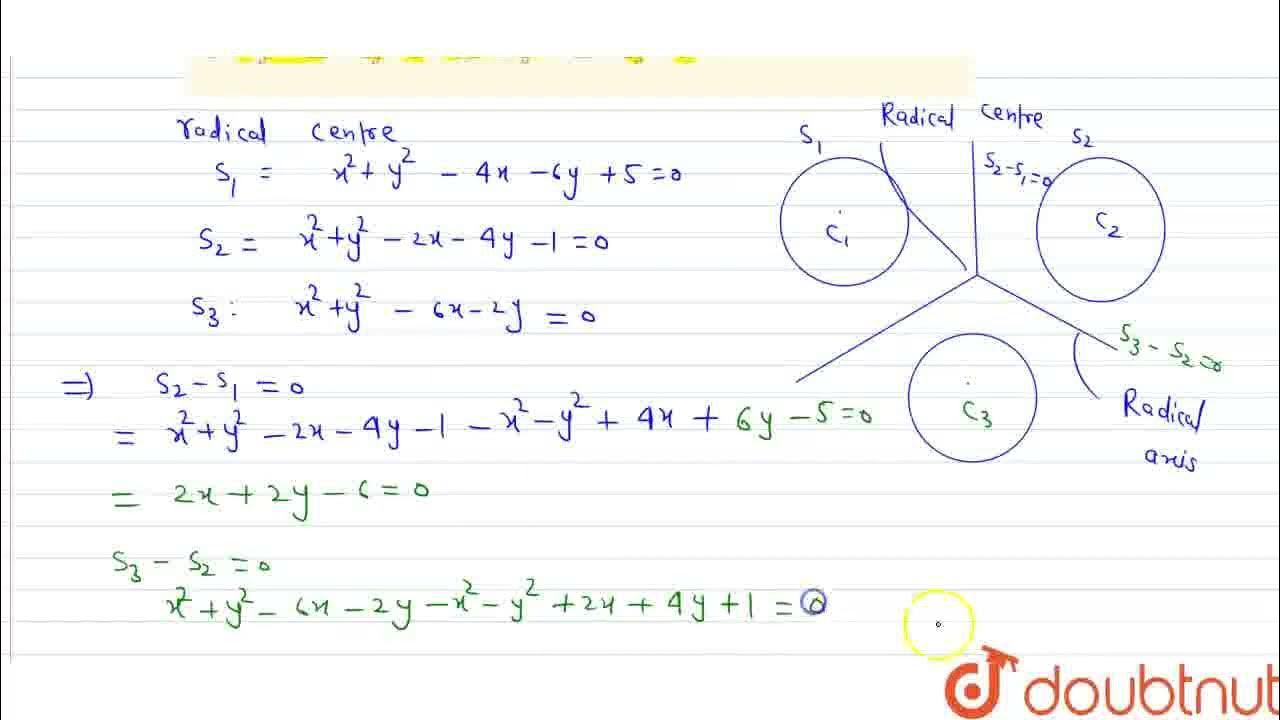 radical centre
S₁ = x² + y² - 4x - 6y + 5 = 0
S₂ = x² + y² - 2x - 4y - 1 = 0
S₃ : x² + y² - 6x - 2y = 0
⇒) S₂ - S₁ = 0
= x² + y² - 2x - 4y - 1 - x² - y² + 4x + 6y - 5 = 0
= 2x + 2y - 6 = 0
S₃ - S₂ = 0
x² + y² - 6x - 2y - x² - y² + 2x + 4y + 1 = 0
Radical centre
S₁
S₂
S₂ - S₁ = 0
C₁
C₂
S₃ - S₂ = 0
C₃
Radical
axis
doubtnut